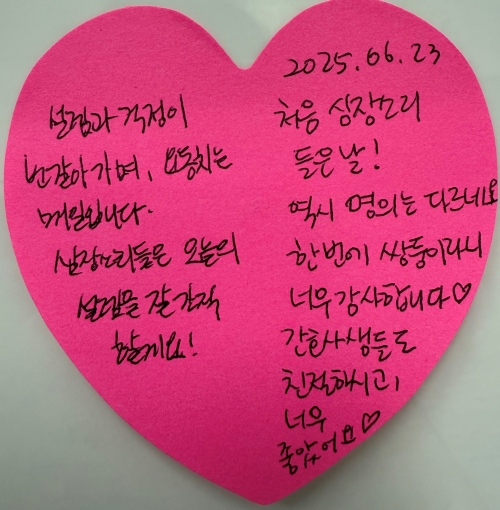 설렘과 걱정이
번갈아 가며, 요동치는
매일입니다.
심장소리들은 오늘의
설렘을 잘 간직
할게요!
2025.06.23
처음 심장소리
들은 날!
역시 명의는 다르네요
한번에 쌍둥이라니
너무 감사합니다♡
간호사쌤들도
친절하시고,
너무
좋았어요♡